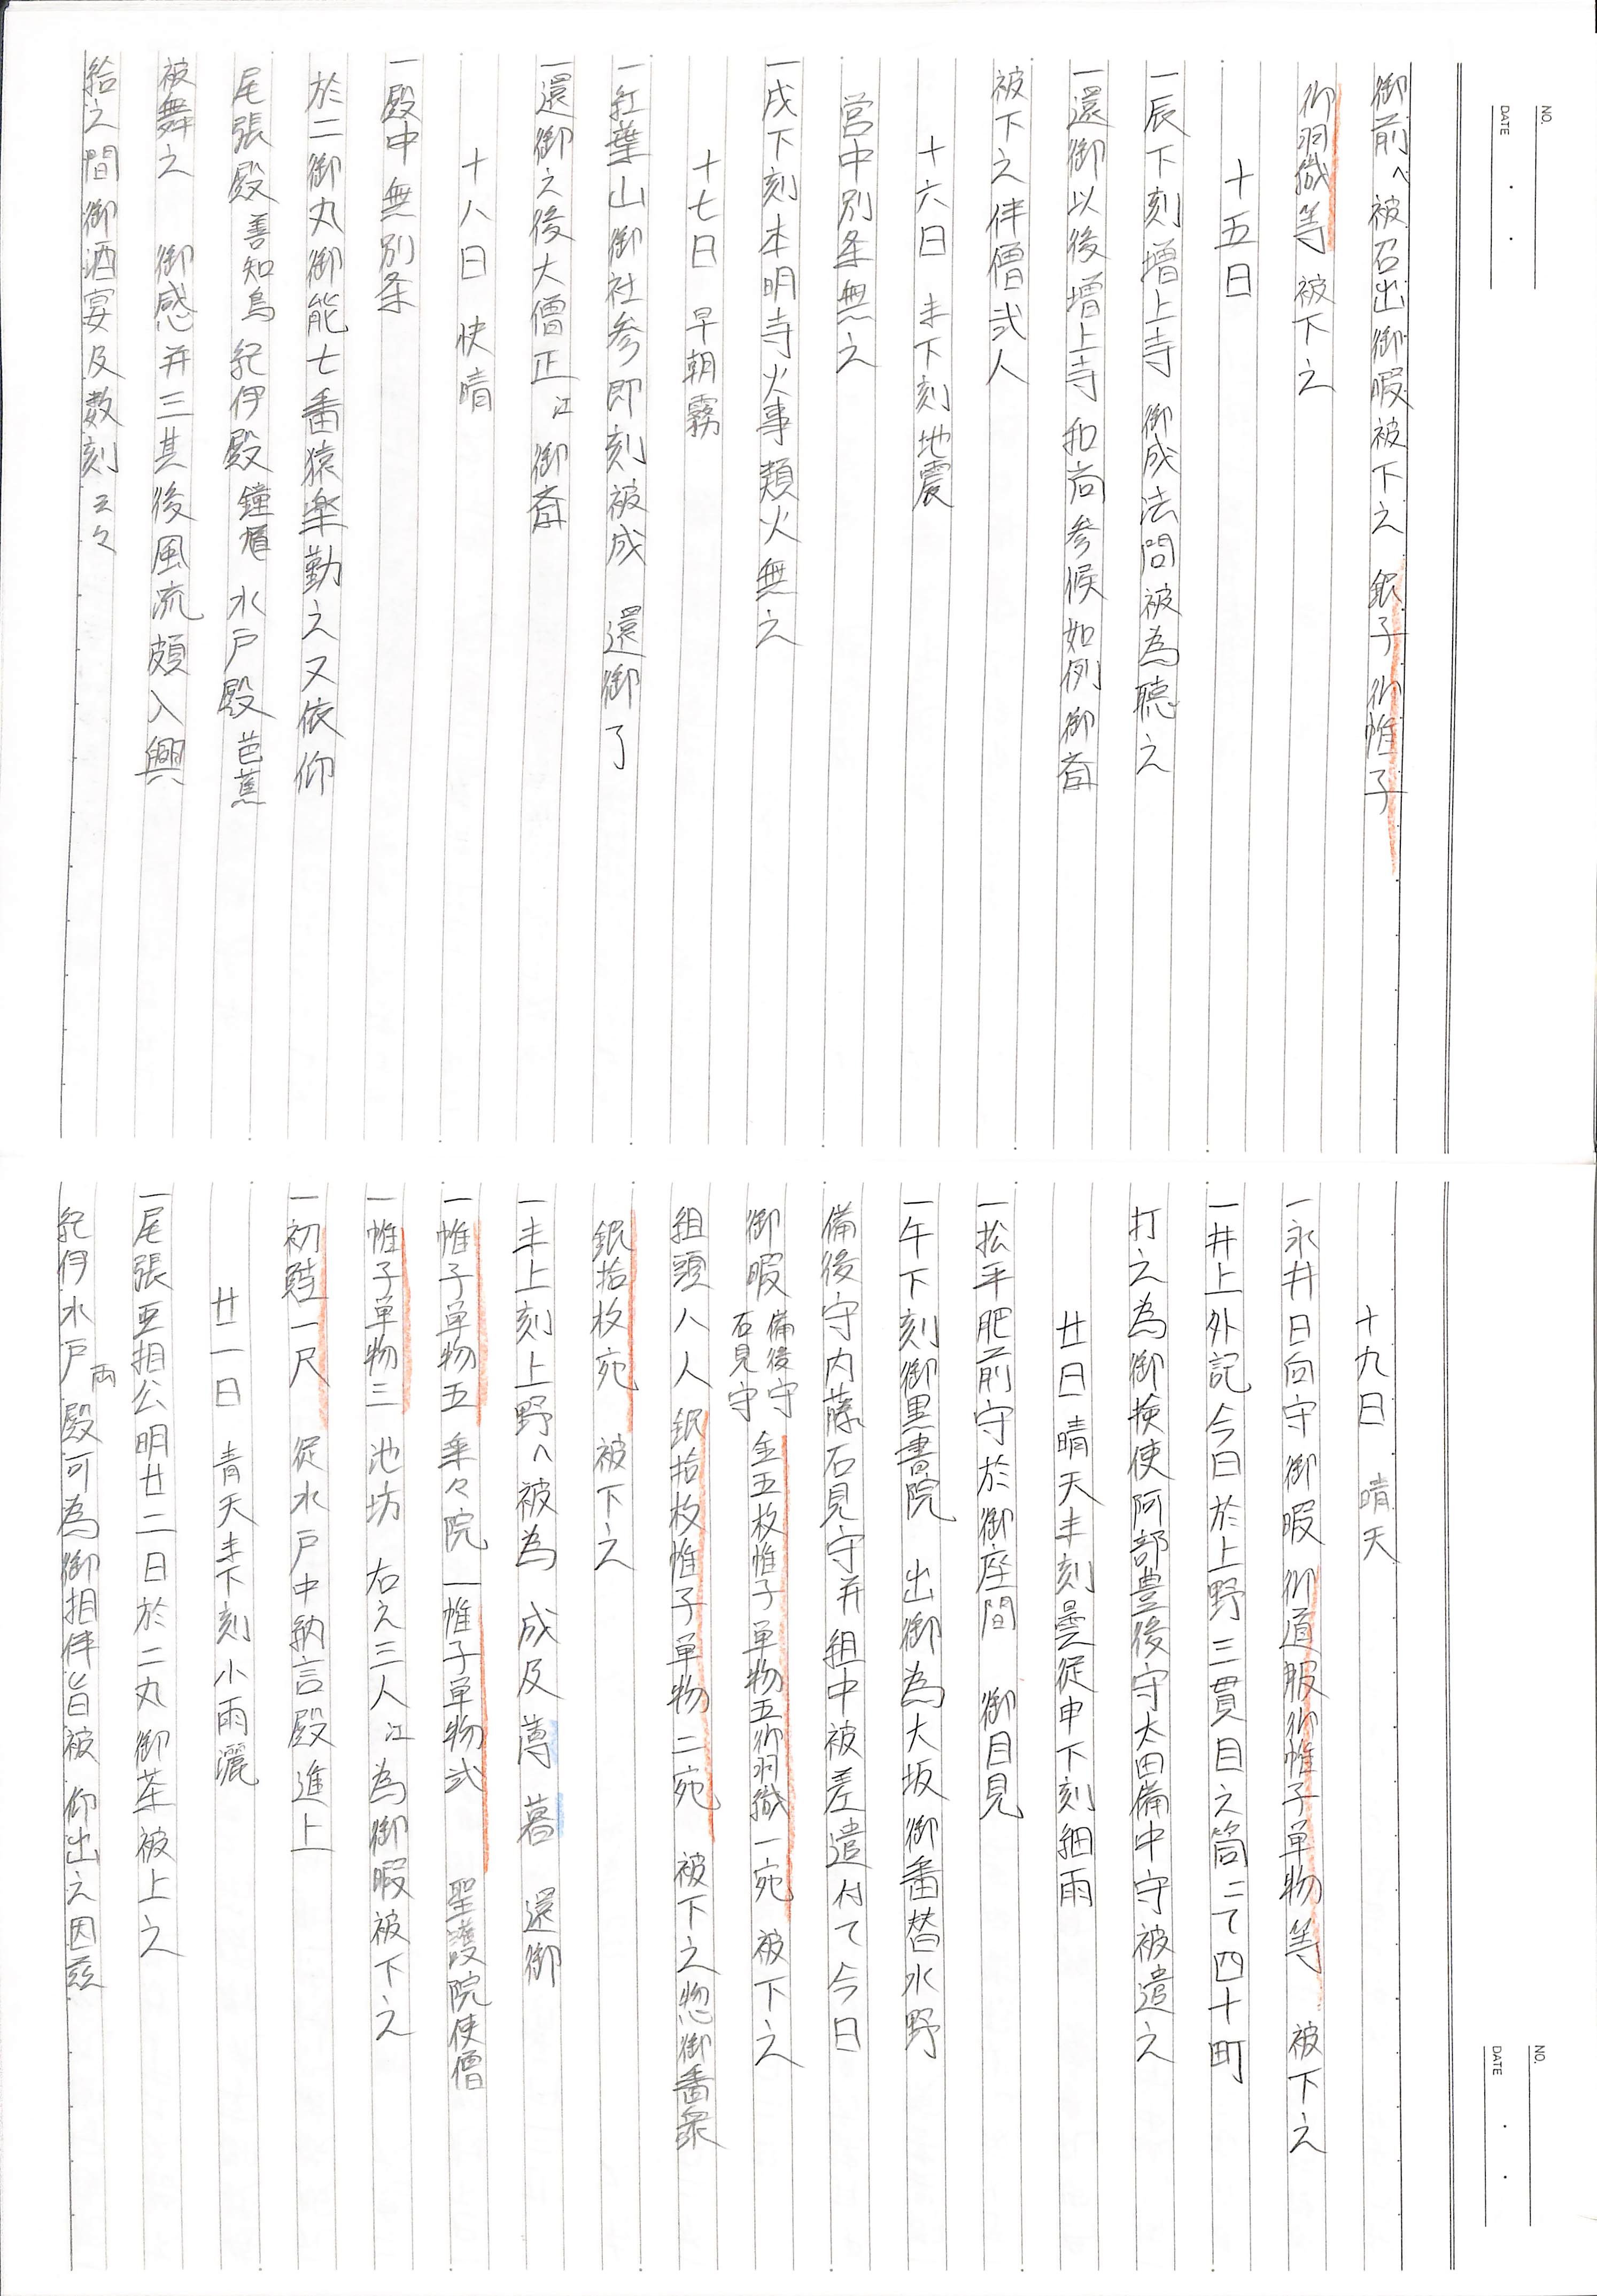 NO.
DATE
御前へ被召出御暇被下之 銀子 御帷子
御羽織等 被下之
十五日
一辰下刻増上寺 御成法問被為聴之
一還御以後増上寺和尚参候如例御斎
被下之伴僧弐人
十六日 未下刻地震
営中別条無之
一戌下刻本明寺火事類火無之
十七日 早朝霧
一紅葉山御社参即刻被成 還御了
一還御之後大僧正江御斎
十八日 快晴
一殿中無別条
於二御丸御能七番猿楽勤之又依仰
尾張殿善知鳥紀伊殿鐘馗水戸殿芭蕉
被舞之 御感并三其後風流頗入興
給之間御酒宴及数刻云々
NO.
DATE
十九日 晴天
一永井日向守御暇 御道服御帷子単物等 被下之
一井上外記今日於上野三貫目之筒ニて四十町
打之為御検使阿部豊後守太田備中守被遣之
廿日 晴天未刻曇従申下刻細雨
一松平肥前守於御座間 御目見
一午下刻御黒書院 出御為大坂御番替水野
備後守内藤石見守并組中被差遣付て今日
御暇 備後守 石見守 金五枚帷子単物五御羽織一宛 被下之
組頭八人 銀拾枚帷子単物二宛 被下之惣御番衆
銀拾枚宛 被下之
一未上刻上野へ被為 成及蕚暮 還御
一帷子単物五 乗々院 一帷子単物弐 聖護院使僧
一帷子単物三 池坊 右之三人江為御暇被下之
一初鮭一尺 従水戸中納言殿進上
廿一日 青天未下刻小雨灑
一尾張亜相公明廿二日於二丸御茶被上之
紀伊水戸両殿可為御相伴旨被 仰出之因茲